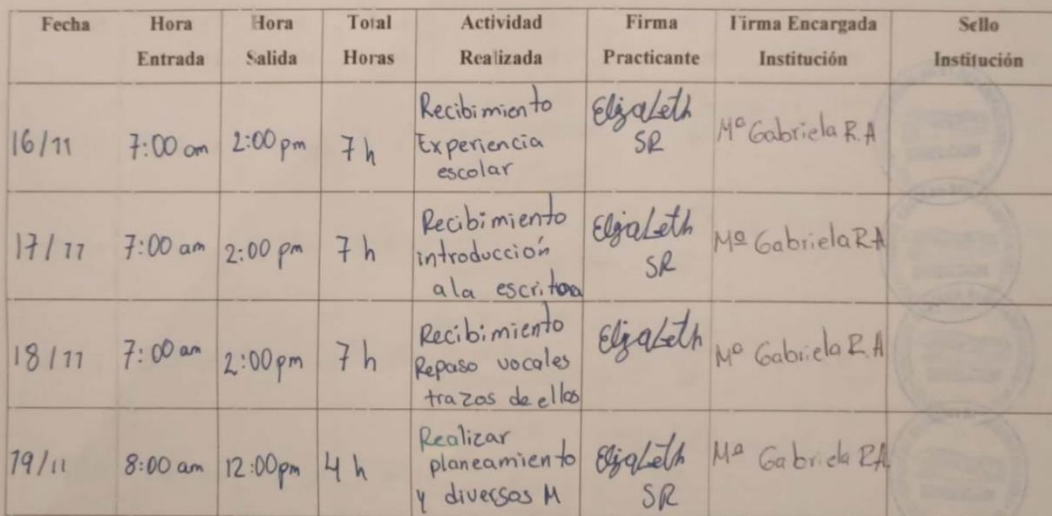 Fecha Hora Entrada Hora Salida Total Horas Actividad Realizada Firma Practicante Firma Encargada Institución Sello Institución
16/11 7:00 am 2:00 pm 7 h Recibimiento Experiencia escolar Elizabeth SR Mª Gabriela R.A
17/11 7:00 am 2:00 pm 7 h Recibimiento introducción a la escritura Elizabeth SR Mª Gabriela RA
18/11 7:00 am 2:00 pm 7 h Recibimiento Repaso vocales trazos de ellos Elizabeth Mª Gabriela R.A
19/11 8:00 am 12:00 pm 4 h Realizar planeamiento y diversos M Elizabeth SR Mª Gabriela RA